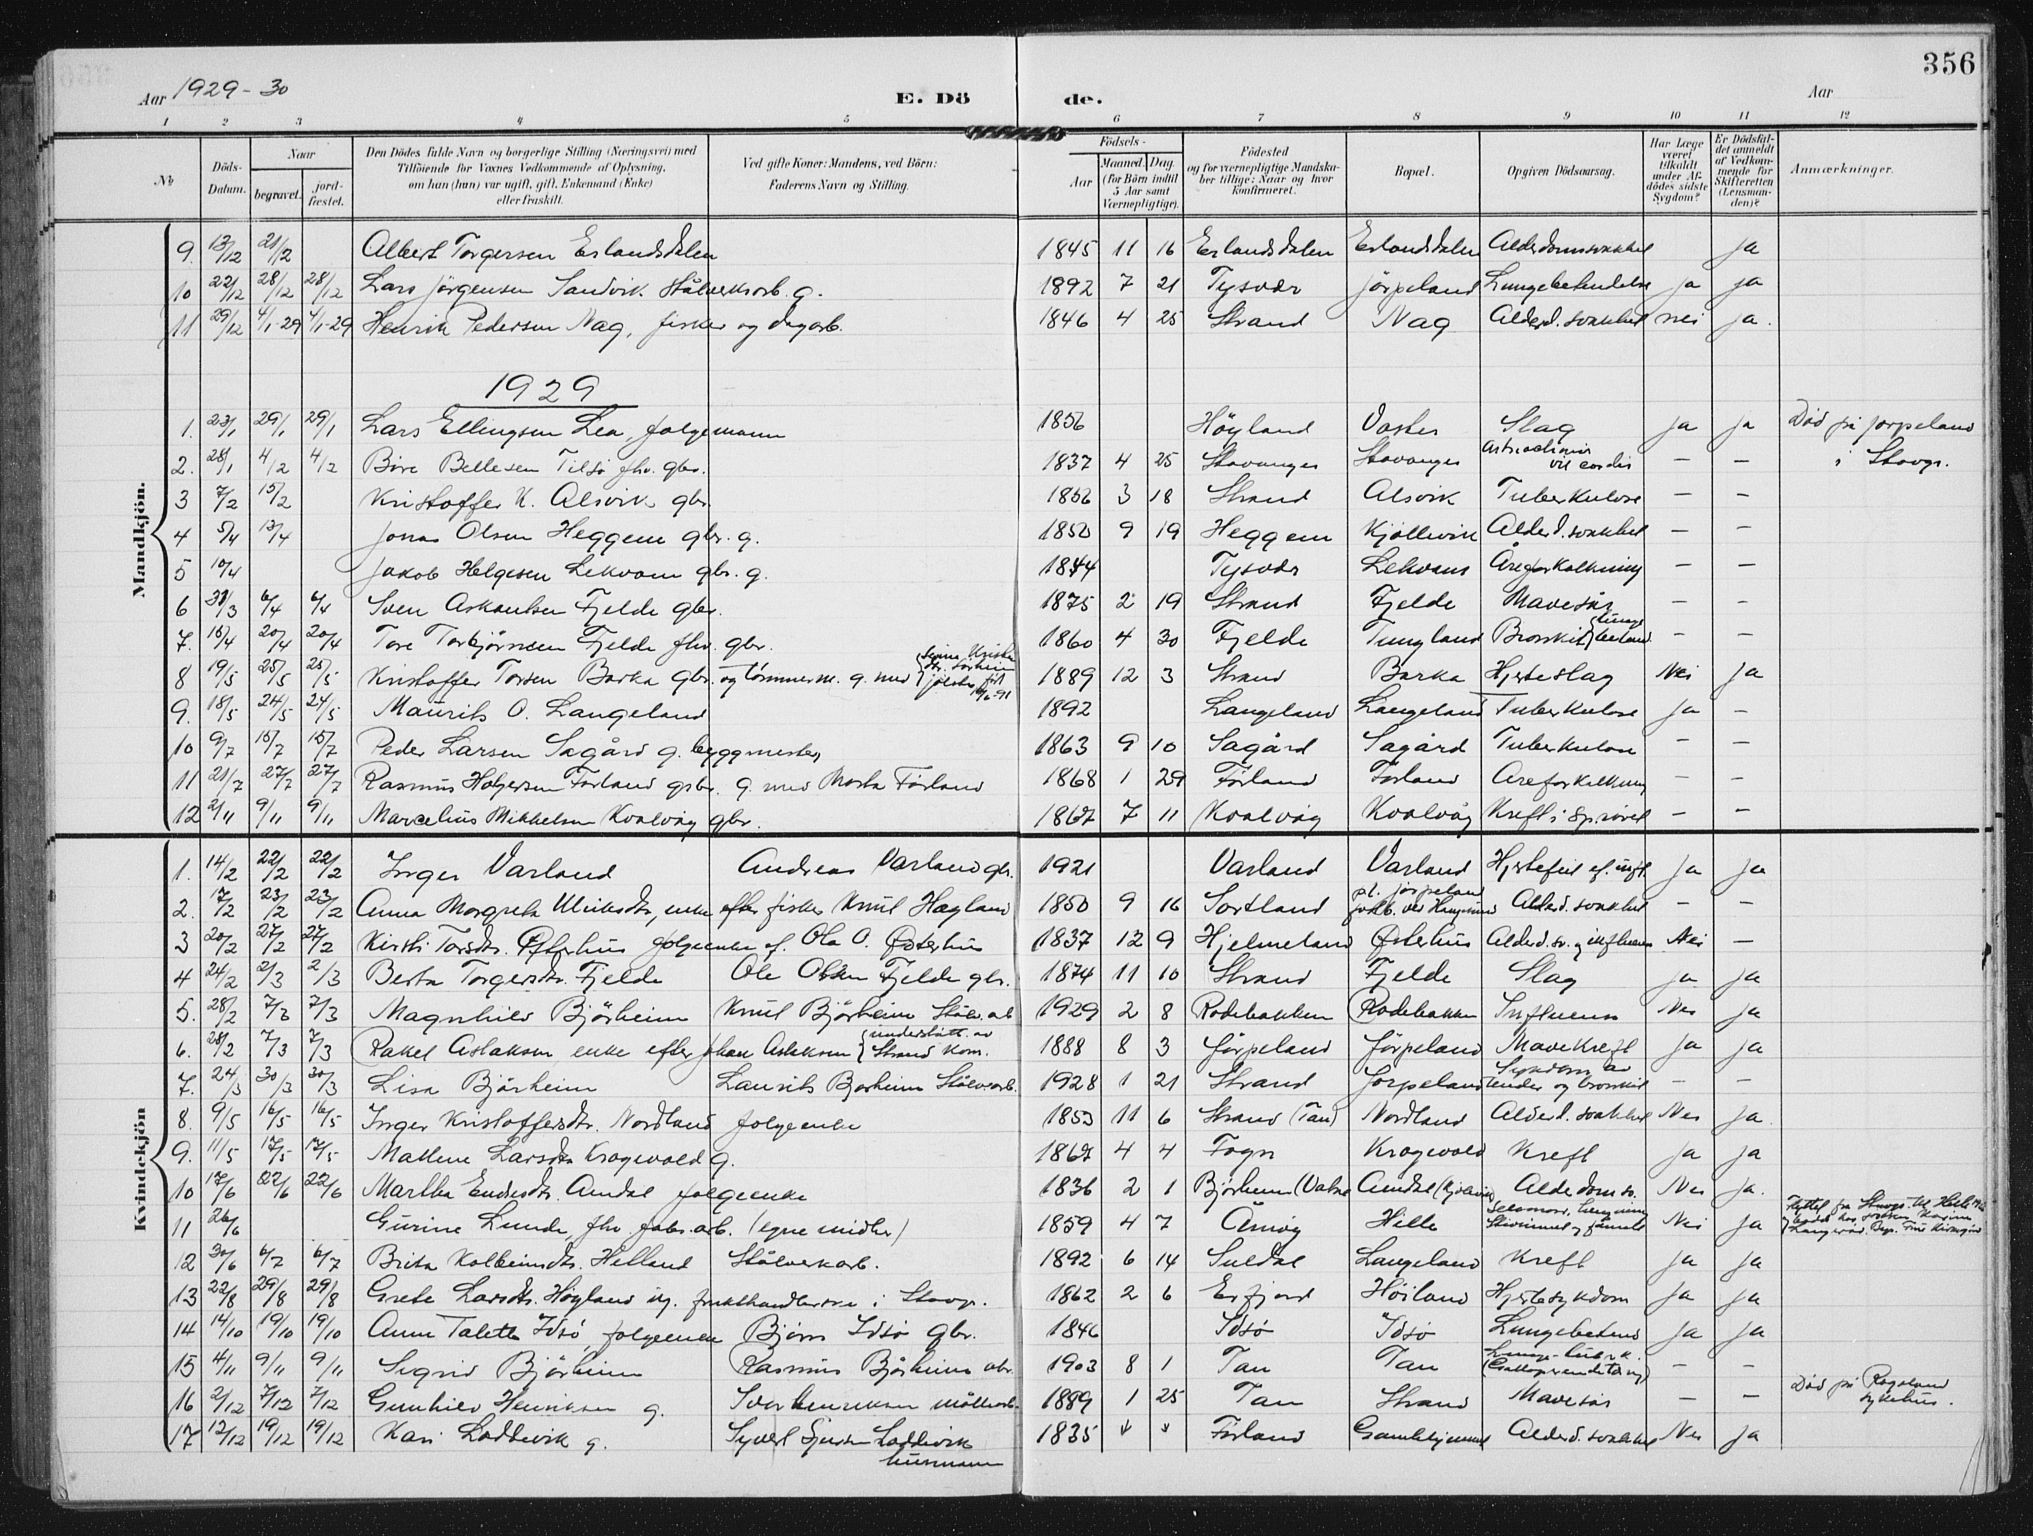 356
Aar 1929-30 E. Dö de. Aar
1 2 3 4 5 6 7 8 9 10 11 12
No.
Döds-Datum.
Naar
begravet.
jord-fæstet.
Den Dödes fulde Navn og borgerlige Stilling (Næringsvei) med
Tilföiende for Voxnes Vedkommende af Oplysning,
om han (hun) var ugift, gift, Enkemand (Enke)
eller fraskilt.
Ved gifte Koner: Mandens, ved Börn:
Faderens Navn og Stilling.
Födsels-
Aar
Maaned. Dag.
(for Börn indtil 5 Aar samt Værnepligtige).
Födested
og for værnepligtige Mandskaber tillige: Naar og hvor Konfirmeret.
Bopæl.
Opgiven Dödsaarsag.
Har Læge været tilkaldt under Afdödes sidste Sygdom?
Er Dödsfaldet anmeldt af Vedkommende for Skifteretten (Lensmanden)?
Anmærkninger.
Mandkjön.
9. 13/12 21/12 Albert Torgersen Erlandsdalen 1845 11 16 Erlandsdalen Erlandsdalen Alderdomssvakhet ja
10 22/12 28/12 28/12 Lars Jörgensen Sandvik Stålverksarb. g. 1892 7 21 Tysvær Jörpeland Lungebetendelse ja ja
11 29/12 4/1-29 4/1-29 Henrik Pedersen Nag, fisker og dagarb. 1846 4 25 Strand Nag Alderd. svakhet nei ja.
1929
1. 23/1 29/1 29/1 Lars Ellingsen Lea, folgemann 1856 Höyland Slag ja ja Död på Jorpeland
2. 28/1 4/2 4/2 Böre Bellesen Tilsö fhv. gbr. 1837 4 25 Stavanger Stavanger cordis — — i Stavgr.
3 7/2 15/2 Kristoffer K. Alsvik gbr. 1856 3 18 Strand Alsvik Tuberkulose — —
4 5/4 13/4 Jonas Olsen Heggem gbr. g. 1850 9 19 Heggem Kjöllevik Alderd. svakhet — —
5 10/4 Jakob Helgesen Lekvam gbr. g. 1844 Tysvær Lekvam Åreforkalkning — —
6 31/3 6/4 6/4 Sven Aslaksen Fjelde gbr. 1875 2 19 Strand Fjelde Mavesår — —
7. 16/4 20/4 20/4 Tore Torbjörnsen Fjelde fhv. gbr. 1860 4 30 Fjelde Tungland Bronkit — —
8 19/5 25/5 25/5 Kristoffer Torsen Barka gbr. og tömmerm. g. med 1889 12 3 Strand Barka Hjerteslag Nei ja
9. 18/5 24/5 24/5 Maurits O. Langeland 1892 Langeland Langeland Tuberkulose ja —
10 9/7 15/7 15/7 Peder Larsen Sagård g. byggmester 1863 9 10 Sagård Sagård Tuberkulose — —
11 21/7 27/7 27/7 Rasmus Holgersen Förland gbr. g. med Marta Förland 1868 1 29 Förland Förland Areforkalkning — —
12 2/11 9/11 9/11 Marcelius Mikkelsen Kvalvåg gbr. 1867 7 11 Kvalvåg Kvalvåg Kreft i Spiseröret — —
Kvindekjön
1. 14/2 22/2 22/2 Inger Varland Andreas Varland gbr. 1921 Varland Varland Hjertefeil ja ja
2. 17/2 23/2 23/2 Anna Margreta Ulriksdtr, enke efter fisker Knut Høgland 1850 9 16 Sortland pt. Jörpeland Alderd. svakhet — —
3 20/2 27/2 27/2 Kirsti Torsdtr. Østerhus folgeenke ef. Ola O. Østerhus 1837 12 9 Hjelmeland Østerhus Alderd.sv. og influensa Nei —
4 24/2 2/3 2/3 Berta Torgersdtr. Fjelde Ole Olsen Fjelde gbr. 1874 11 10 Strand Fjelde Slag ja ja
5. 28/2 7/3 7/3 Magnhild Björheim Knut Björheim Stålv. arb 1929 2 8 Rodebakken Rodebakken Influensa Nei ja
6. 28/2 7/3 7/3 Rakel Aslaksen enke efter Johan Aslaksen understött. av Strand Kom. 1888 8 3 Jörpeland Jörpeland Mavekreft ja ja
7. 24/3 30/3 30/3 Lisa Björheim Laurits Björheim Stålverarb. 1928 1 21 Strand Jorpeland Sykdom av tender og bronkit — —
8. 9/5 16/5 16/5 Inger Kristoffersdtr. Nordland folgeenke 1853 11 6 Strand (Tau) Nordland Alderd. svakhet Nei ja
9. 11/5 17/5 17/5 Mallene Larsdtr Kragevold g. 1867 4 4 Fogn Kragevold Kreft ja ja
10 17/6 22/6 22/6 Martha Endresdtr. Amdal folgeenke 1836 2 1 Björheim Amdal Alderdomsv. Nei ja.
11 26/6 Gurine Lunde, fhv. fabr. arb. (egne midler) 1859 4 7 Åmöy Hille Nei ja
12 30/6 6/7 6/7 Brita Kolbeinsdtr. Helland Stålverkarb. 1892 6 14 Suldal Langeland Kreft ja ja
13 22/8 29/8 29/8 Grete Larsdtr. Höyland ug. frukthandlerske i Stavgr. 1862 2 6 Erfjord Höiland Hjertesykdom ja ja
14 14/10 19/10 19/10 Anne Talette Idsö, folgeenke Björn Idsö gbr. 1846 Idsö Idsö Lungebetend ja ja
15 4/11 9/11 9/11 Sigrid Björheim Rasmus Björheim 1903 8 1 Tau Tau — —
16 2/12 7/12 7/12 Gunhild Henriksen g. Henriksen möllearb. 1889 1 25 Tau Strand Mavesår — — Död på Rogaland sykehus.
17 12/12 19/12 19/12 Kari Laddevik g. Syvert Laddevik husmann 1835 Förland Gamlehjemmet Alderd. svakhet Nei ja